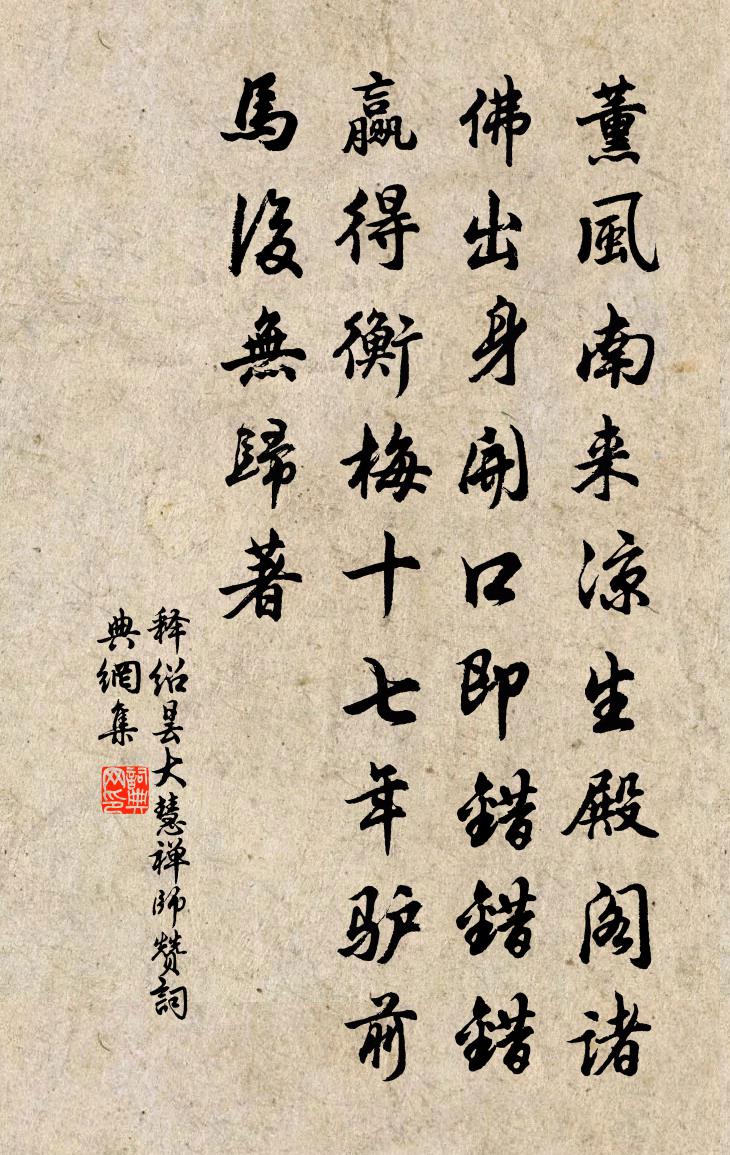 薰風南来凉生殿阁諸
佛出身開口即錯錯錯
贏得衡梅十七年驴前
馬後無歸著
释绍昙大慧禅师赞詞
典網集
詞典网印